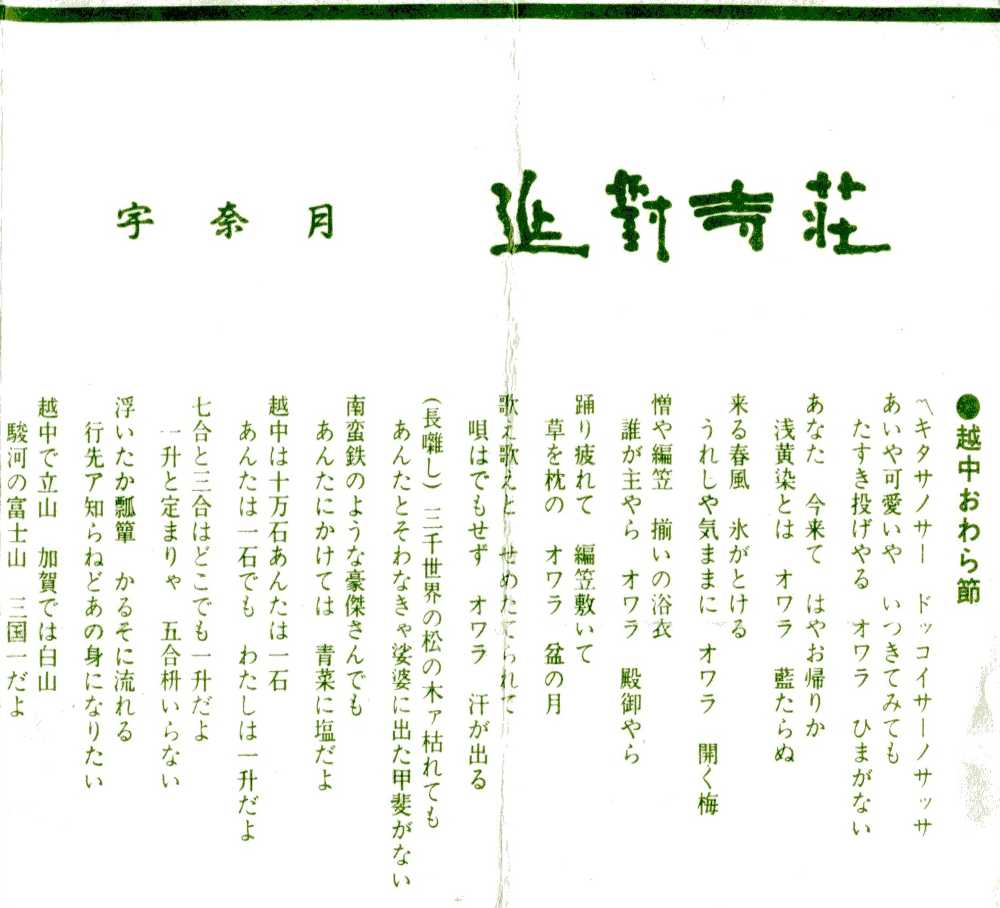 宇奈月 延對寺荘
●越中おわら節
〽キタサノサー ドッコイサーノサッサ
あいや可愛いや いつきてみても
たすき投げやる オワラ ひまがない
あなた 今来て はやお帰りか
浅黄染とは オワラ 藍たらぬ
来る春風 氷がとける
うれしや気ままに オワラ 開く梅
憎や編笠 揃いの浴衣
誰が主やら オワラ 殿御やら
踊り疲れて 編笠敷いて
草を枕の オワラ 盆の月
歌え歌えと り せめたてられて
唄はでもせず オワラ 汗が出る
(長囃し) 三千世界の松の木ァ枯れても
あんたとそわなきゃ娑婆に出た甲斐がない
南蛮鉄のような豪傑さんでも
あんたにかけては 青菜に塩だよ
越中は十万石あんたは一石
あんたは一石でも わたしは一升だよ
七合と三合はどこでも一升だよ
一升と定まりゃ 五合枡いらない
浮いたか瓢簞 かるそに流れる
行先ア知らねどあの身になりたい
越中で立山 加賀では白山
駿河の富士山 三国一だよ